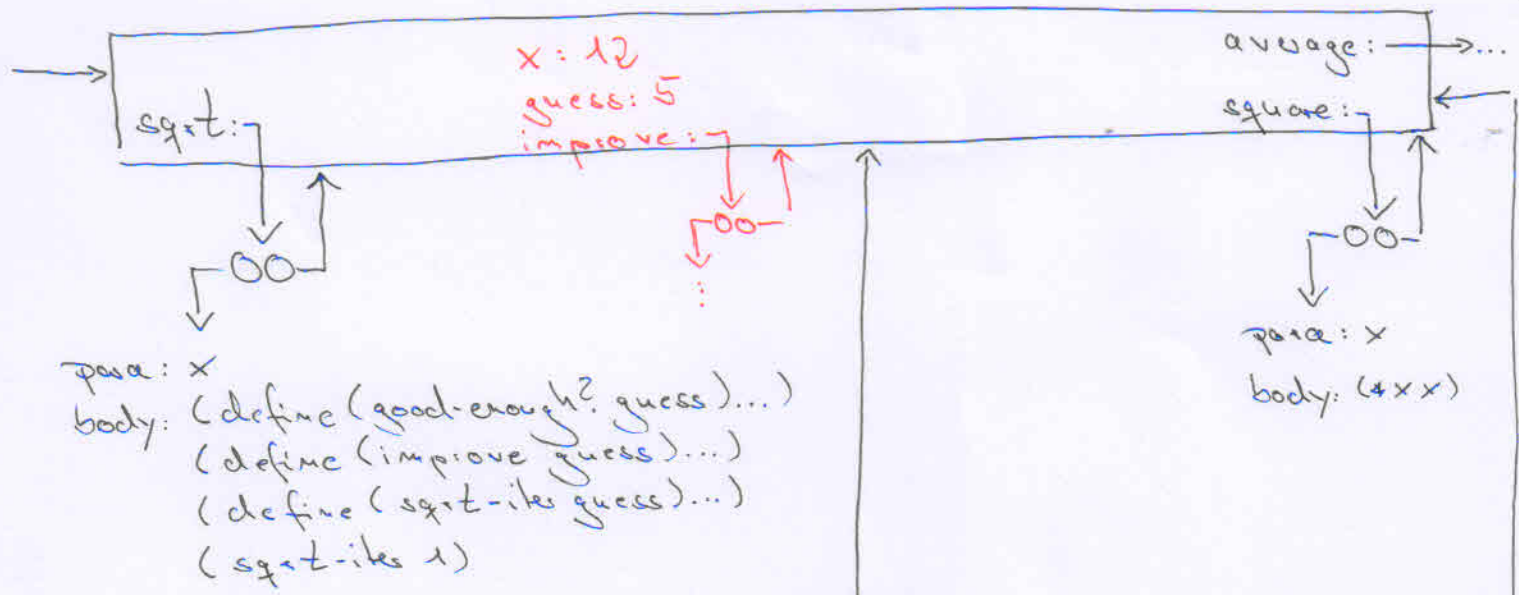 x: 12
guess: 5
improve:
sqrt:
average: ...
square:
para: x
body: (define (good-enough? guess)...)
(define (improve guess)...)
(define (sqrt-iter guess)...)
(sqrt-iter 1)
para: x
body: (* x x)